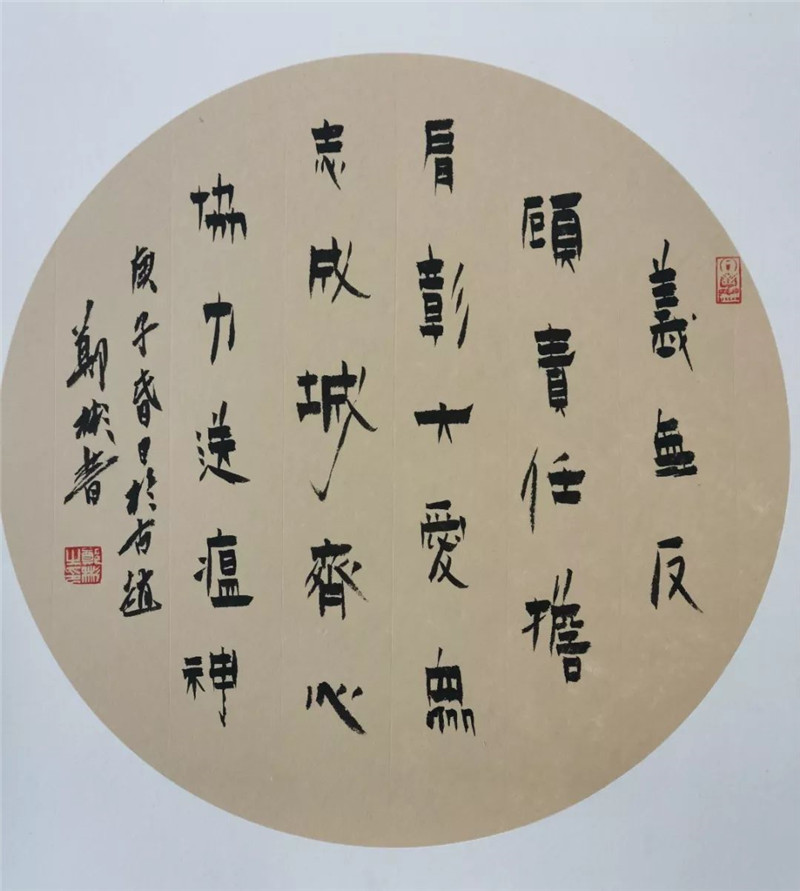 義無反
顧責任擔
肩彰大愛眾
志成城齊心
協力送瘟神
庚子春日於古趙
鄭彬書
鄭彬之印